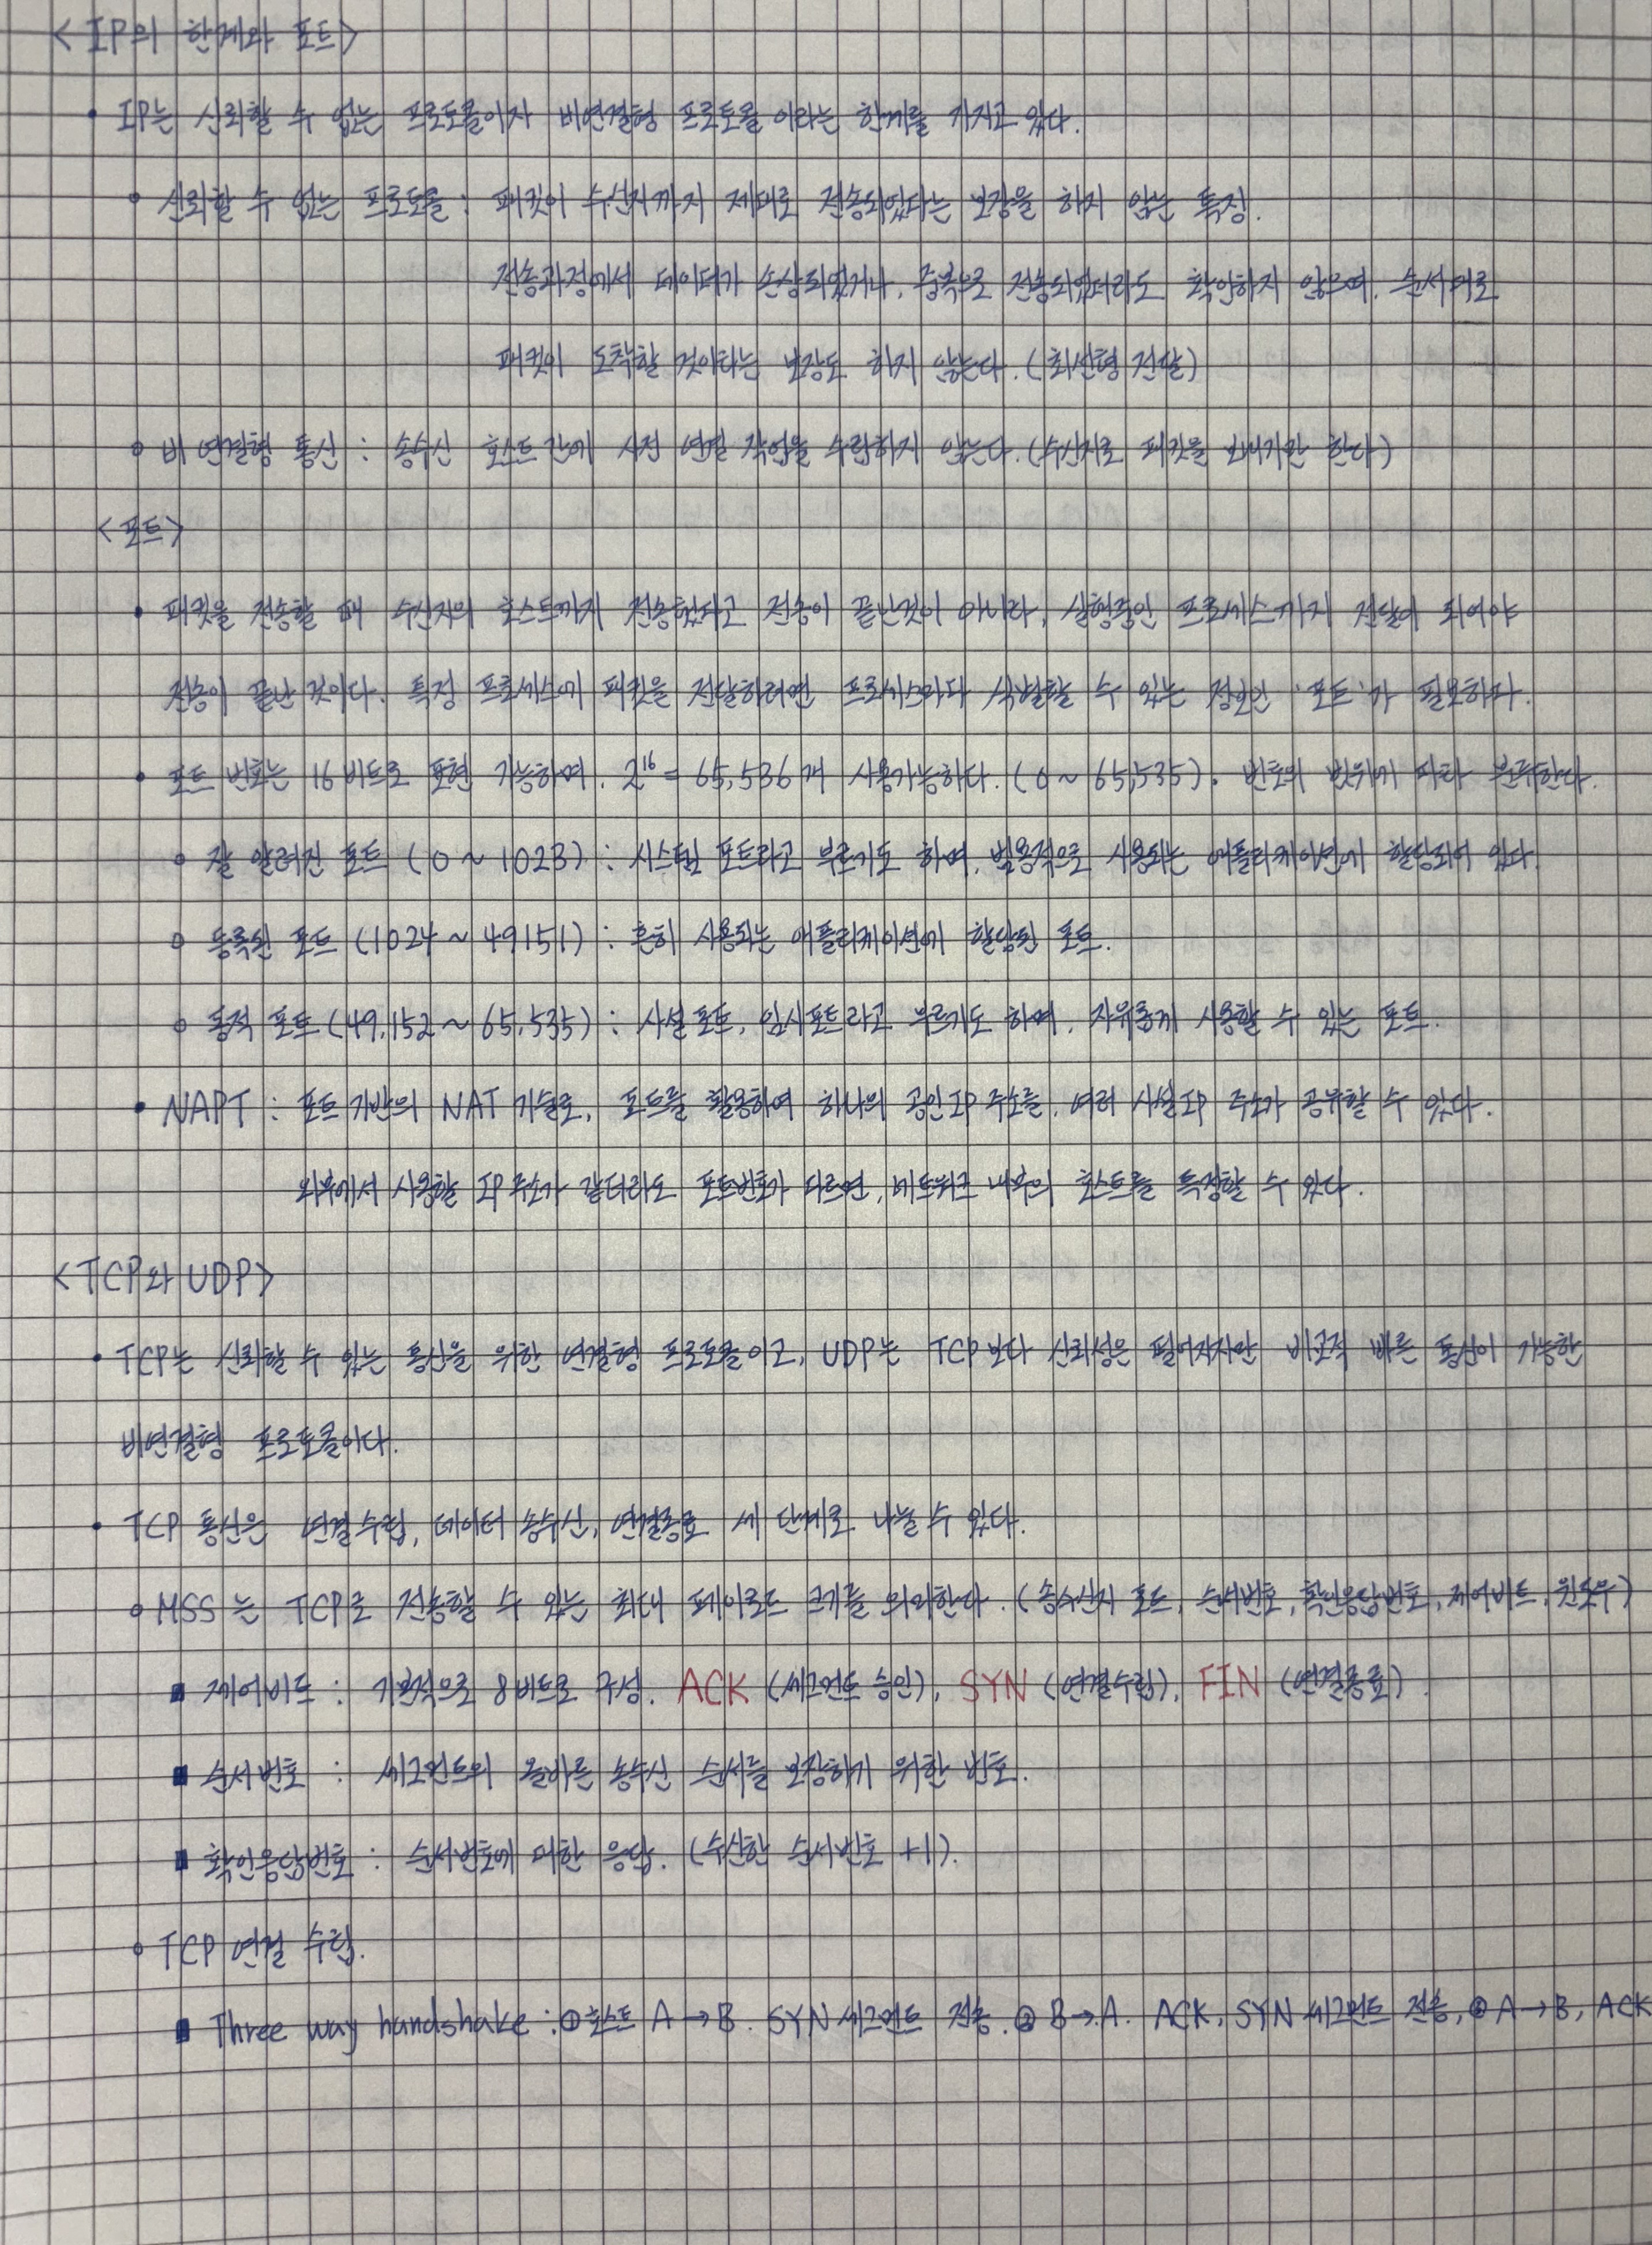 <IP의 한계와 포트>
• IP는 신뢰할 수 없는 프로토콜이자 비연결형 프로토콜 이라는 한계를 가지고 있다.
∘ 신뢰할 수 없는 프로토콜 : 패킷이 수신지까지 제대로 전송되었다는 보장을 하지 않는 특징.
전송과정에서 데이터가 손상되었거나, 중복으로 전송되었더라도 확인하지 않으며, 순서대로
패킷이 도착할 것이라는 보장도 하지 않는다. (최선형 전달)
∘ 비 연결형 통신 : 송수신 호스트 간에 사전 연결 작업을 수립하지 않는다. (수신지로 패킷을 보내기만 한다)
<포트>
• 패킷을 전송할 때 수신자의 호스트까지 전송했다고 전송이 끝난것이 아니라, 실행중인 프로세스까지 전달이 되어야
전송이 끝난 것이다. 특정 프로세스에 패킷을 전달하려면 프로세스마다 식별할 수 있는 정보인 '포트'가 필요하다.
• 포트 번호는 16비트로 표현 가능하며, 2¹⁶ = 65,536개 사용가능하다. (0 ~ 65,535). 번호의 범위에 따라 분류한다.
∘ 잘 알려진 포트 (0 ~ 1023) : 시스템 포트라고 부르기도 하며, 범용적으로 사용되는 애플리케이션에 할당되어 있다.
∘ 등록된 포트 (1024 ~ 49151) : 흔히 사용되는 애플리케이션에 할당된 포트.
∘ 동적 포트 (49,152 ~ 65,535) : 사설 포트, 임시포트라고 부르기도 하며, 자유롭게 사용할 수 있는 포트.
• NAPT : 포트 기반의 NAT 기술로, 포트를 활용하여 하나의 공인 IP 주소를, 여러 사설 IP 주소가 공유할 수 있다.
외부에서 사용할 IP 주소가 같더라도 포트번호가 다르면, 네트워크 내부의 호스트를 특정할 수 있다.
<TCP와 UDP>
• TCP는 신뢰할 수 있는 통신을 위한 연결형 프로토콜이고, UDP는 TCP보다 신뢰성은 떨어지지만 비교적 빠른 통신이 가능한
비연결형 프로토콜이다.
• TCP 통신은 연결수립, 데이터 송수신, 연결종료 세 단계로 나눌 수 있다.
∘ MSS 는 TCP로 전송할 수 있는 최대 페이로드 크기를 의미한다. (송수신지 포트, 순서번호, 확인응답번호, 제어비트, 윈도우)
▪ 제어비트 : 기본적으로 8비트로 구성. ACK (세그먼트 승인), SYN (연결수립), FIN (연결종료)
▪ 순서번호 : 세그먼트의 올바른 송수신 순서를 보장하기 위한 번호.
▪ 확인응답번호 : 순서번호에 대한 응답. (수신한 순서번호 +1).
∘ TCP 연결 수립.
▪ Three way handshake : ① 호스트 A → B. SYN 세그먼트 전송. ② B → A. ACK, SYN 세그먼트 전송, ③ A → B, ACK